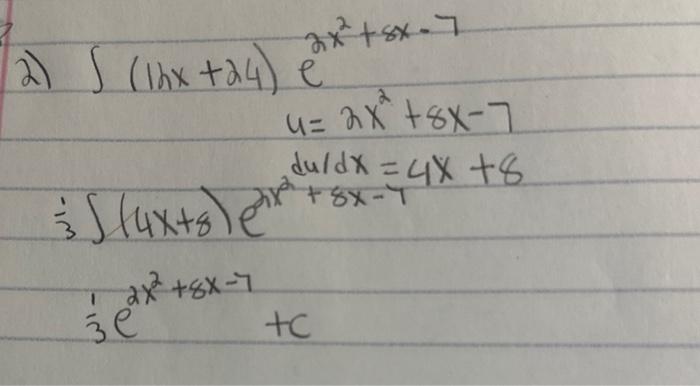 2) ∫ (12x + 24) e^{2x² + 8x - 7}
u = 2x² + 8x - 7
du/dx = 4x + 8
1/3 ∫ (4x+8) e^{2x² + 8x - 7}
1/3 e^{2x² + 8x - 7} + c